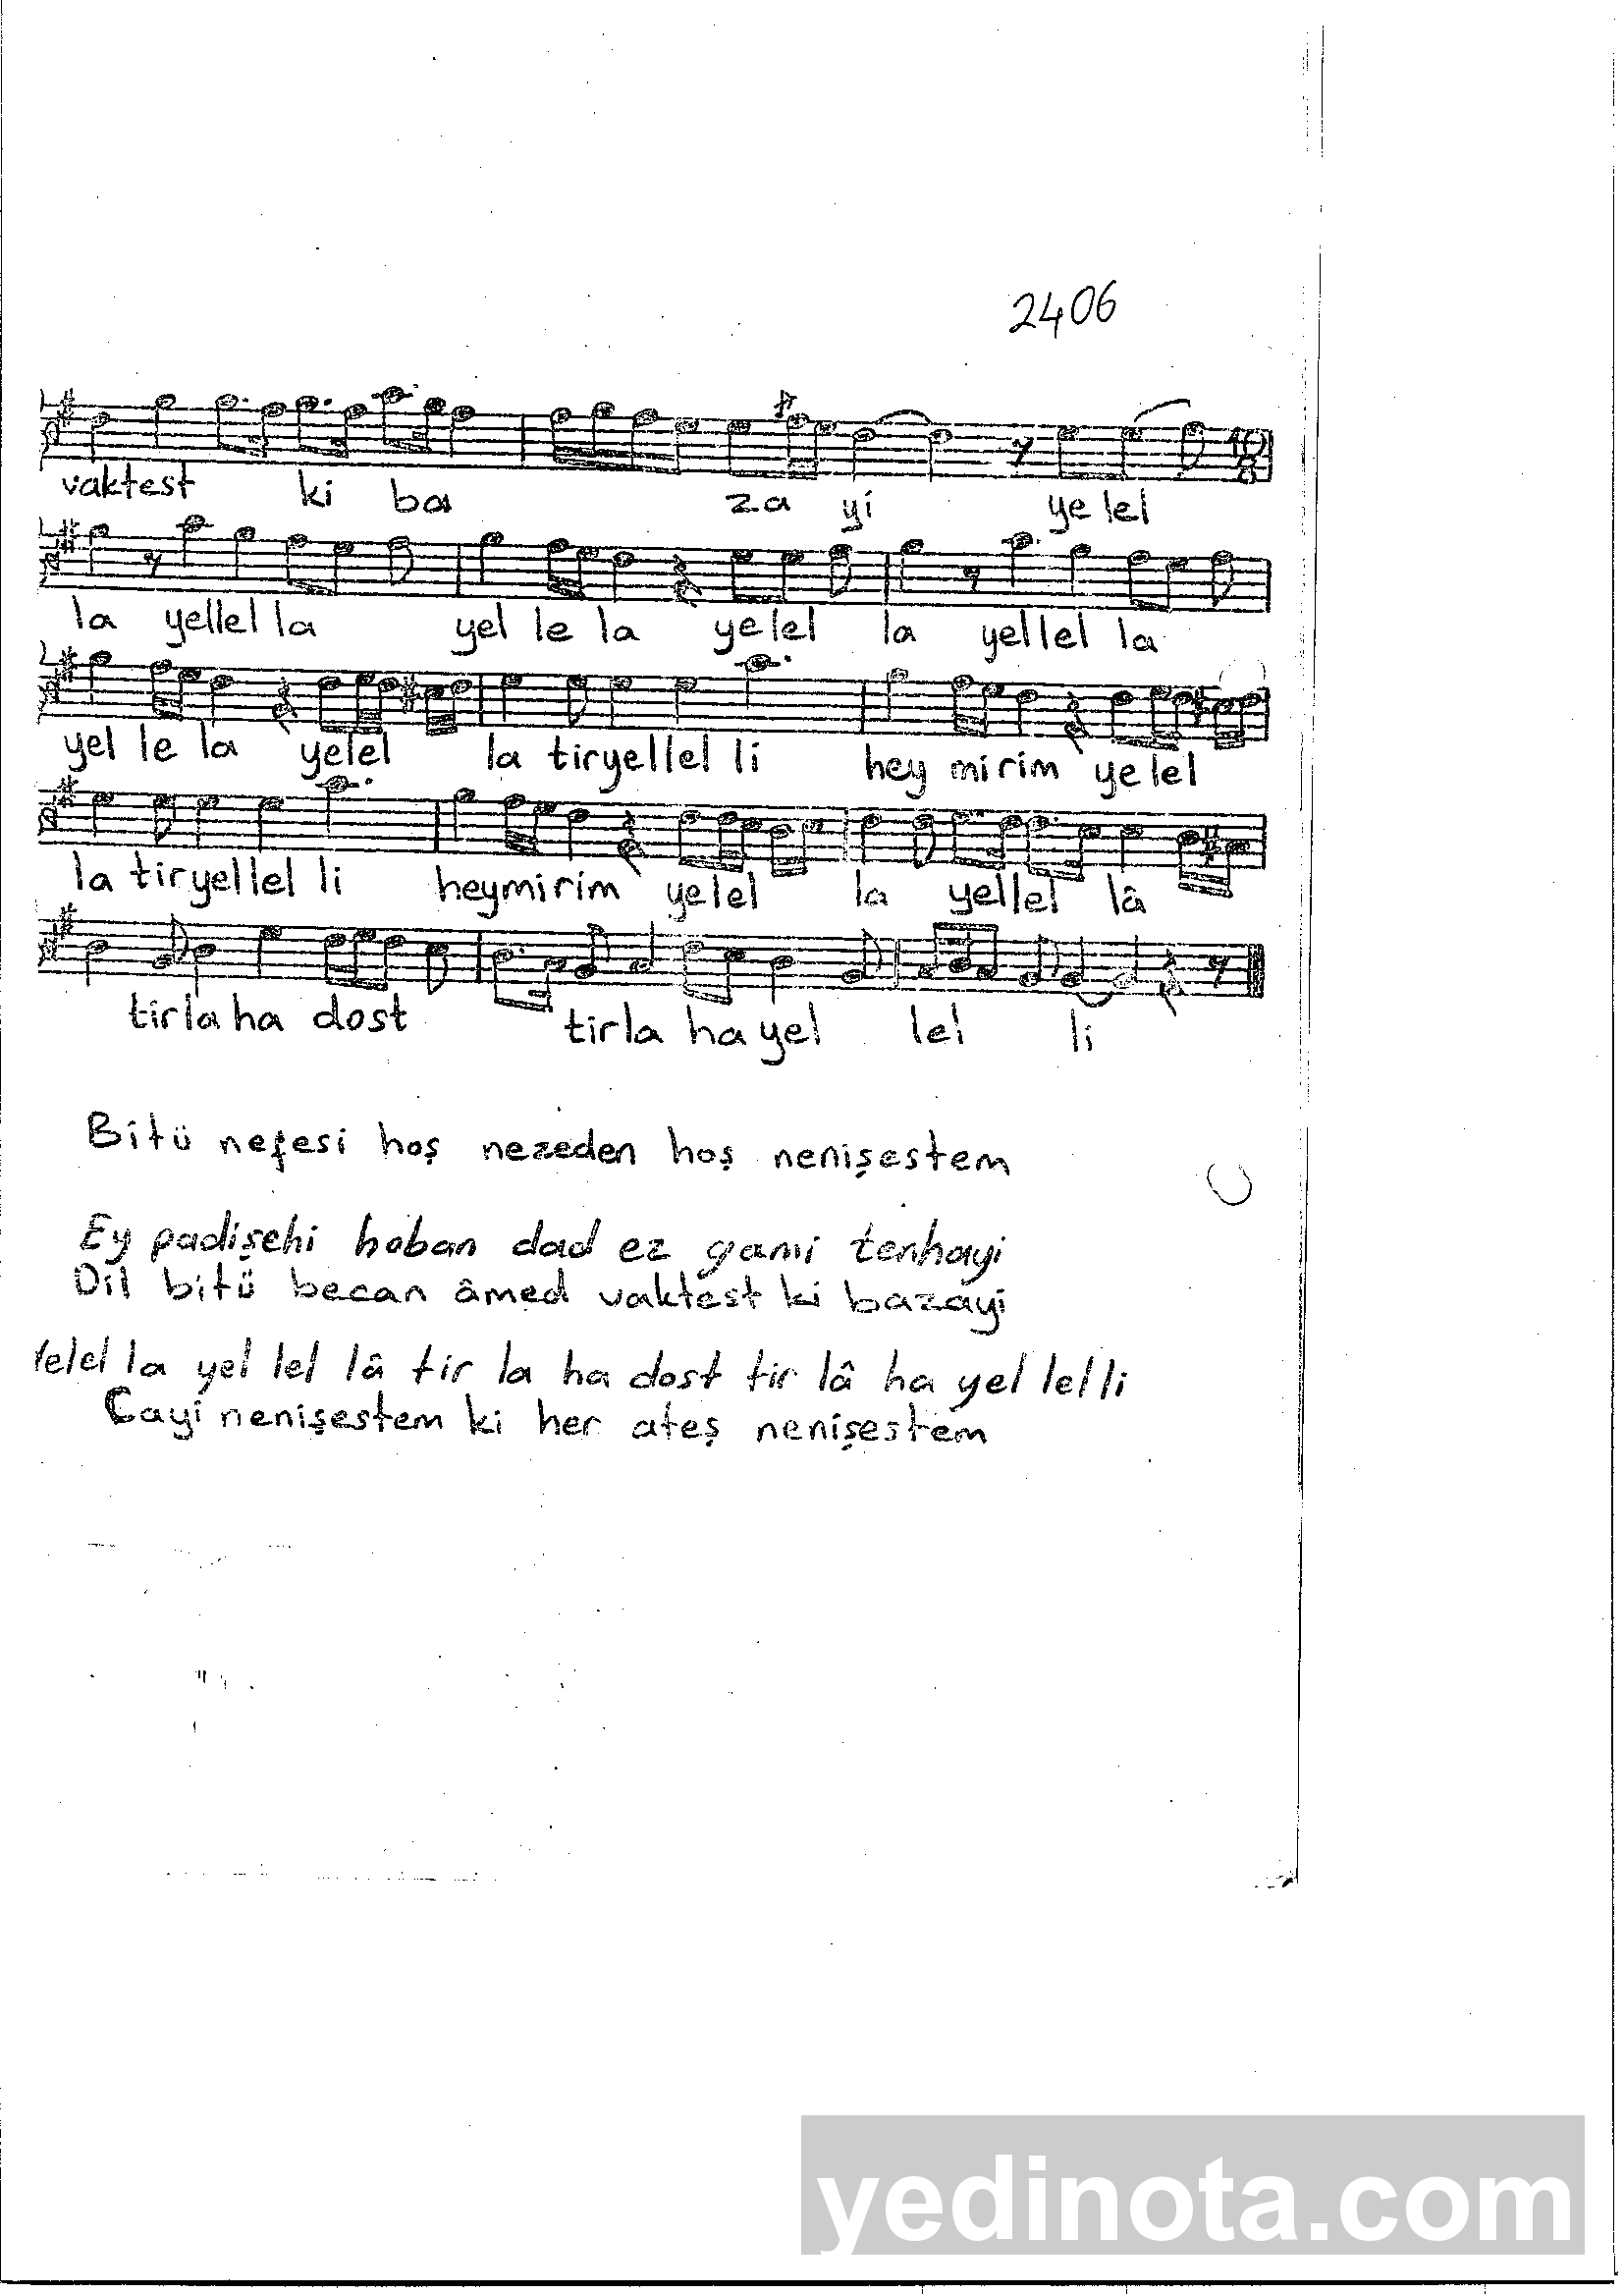 2406
vaktest ki ba za yi ye lel
la yellel la yel le la yelel la yellel la
yel le la yelel la tiryellel li hey mirim yelel
la tiryellel li heymirim yelel la yellel lâ
tirlaha dost tirla hayel lel li
Bitü nefesi hoş nezeden hoş nenişestem
Ey padişehi hoban dad ez gami tenhayi
Dil bitü becan âmed vaktest ki bazayi
Yelel la yel lel lâ tir la ha dost tir lâ ha yel lel li
Cayi nenişestem ki her ateş nenişestem
yedinota.com